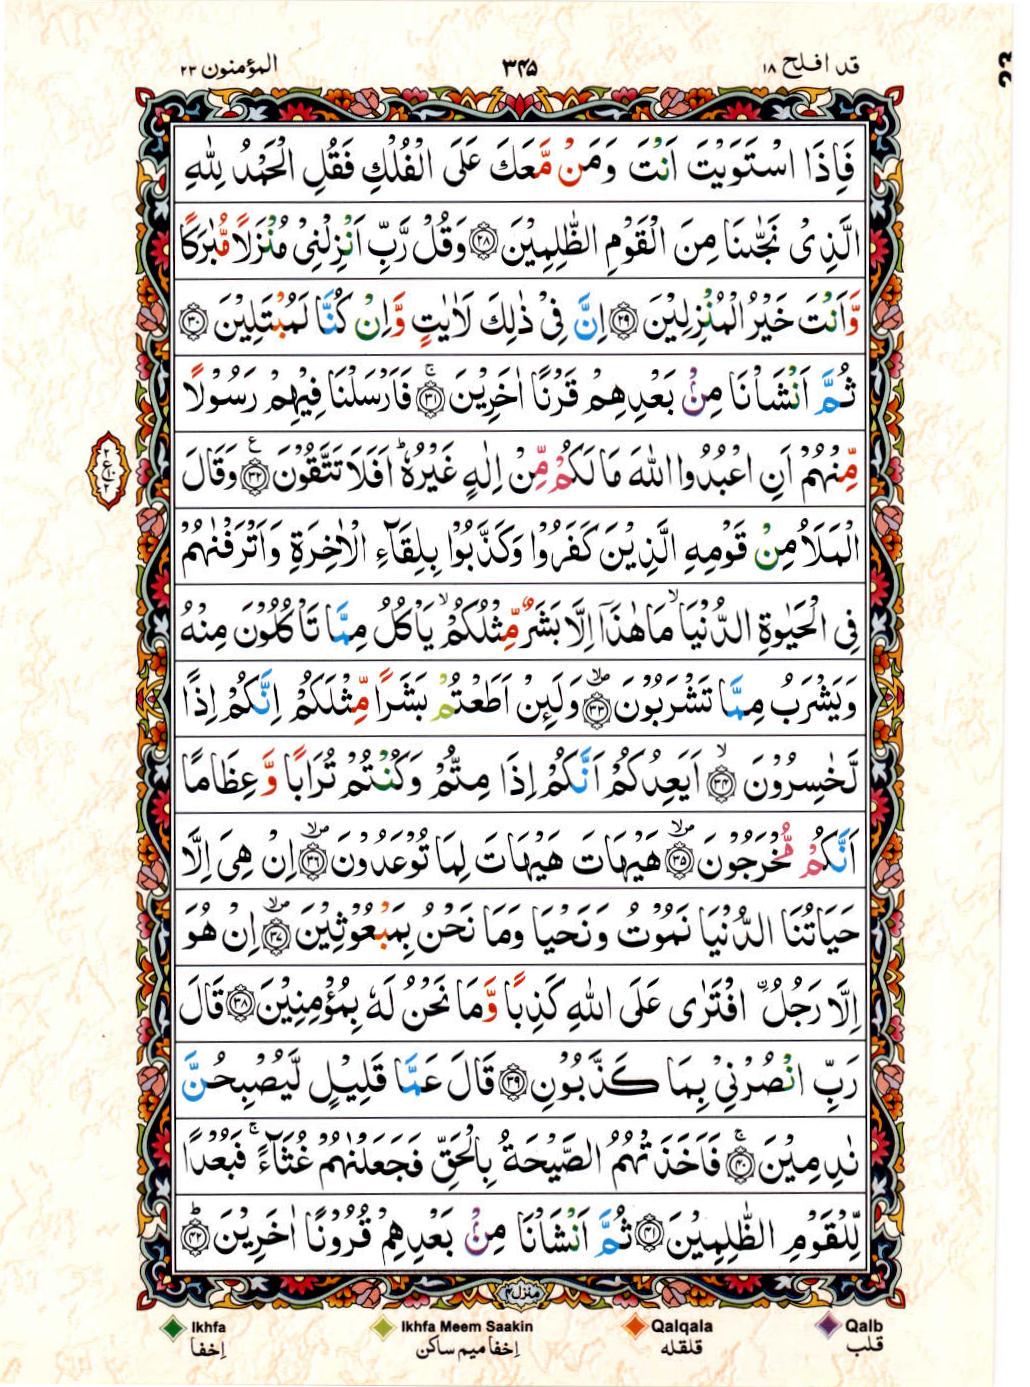 قد افلح ١٨
٣٤٥
المؤمنون ٢٣
فَاِذَا اسْتَوَيْتَ اَنْتَ وَمَنْ مَّعَكَ عَلَى الْفُلْكِ فَقُلِ الْحَمْدُ لِلّٰهِ
الَّذِىْ نَجّٰىنَا مِنَ الْقَوْمِ الظّٰلِمِيْنَ ﴿٢٨﴾ وَقُلْ رَّبِّ اَنْزِلْنِىْ مُنْزَلًا مُّبٰرَكًا
وَّاَنْتَ خَيْرُ الْمُنْزِلِيْنَ ﴿٢٩﴾ اِنَّ فِىْ ذٰلِكَ لَاٰيٰتٍ وَّاِنْ كُنَّا لَمُبْتَلِيْنَ ﴿٣٠﴾
ثُمَّ اَنْشَاْنَا مِنْۢ بَعْدِهِمْ قَرْنًا اٰخَرِيْنَ ۚ﴿٣١﴾ فَاَرْسَلْنَا فِيْهِمْ رَسُوْلًا
مِّنْهُمْ اَنِ اعْبُدُوا اللّٰهَ مَا لَكُمْ مِّنْ اِلٰهٍ غَيْرُهٗ ؕ اَفَلَا تَتَّقُوْنَ ﴿٣٢﴾ ع وَقَالَ
الْمَلَاُ مِنْ قَوْمِهِ الَّذِيْنَ كَفَرُوْا وَكَذَّبُوْا بِلِقَآءِ الْاٰخِرَةِ وَاَتْرَفْنٰهُمْ
فِى الْحَيٰوةِ الدُّنْيَا ۙ مَا هٰذَاۤ اِلَّا بَشَرٌ مِّثْلُكُمْ ۙ يَاْكُلُ مِمَّا تَاْكُلُوْنَ مِنْهُ
وَيَشْرَبُ مِمَّا تَشْرَبُوْنَ ۙ﴿٣٣﴾ وَلَئِنْ اَطَعْتُمْ بَشَرًا مِّثْلَكُمْ اِنَّكُمْ اِذًا
لَّخٰسِرُوْنَ ۙ﴿٣٤﴾ اَيَعِدُكُمْ اَنَّكُمْ اِذَا مِتُّمْ وَكُنْتُمْ تُرَابًا وَّعِظَامًا
اَنَّكُمْ مُّخْرَجُوْنَ ۙ﴿٣٥﴾ هَيْهَاتَ هَيْهَاتَ لِمَا تُوْعَدُوْنَ ۙ﴿٣٦﴾ اِنْ هِىَ اِلَّا
حَيَاتُنَا الدُّنْيَا نَمُوْتُ وَنَحْيَا وَمَا نَحْنُ بِمَبْعُوْثِيْنَ ۙ﴿٣٧﴾ اِنْ هُوَ
اِلَّا رَجُلُ ۨافْتَرٰى عَلَى اللّٰهِ كَذِبًا وَّمَا نَحْنُ لَهٗ بِمُؤْمِنِيْنَ ﴿٣٨﴾ قَالَ
رَبِّ انْصُرْنِىْ بِمَا كَذَّبُوْنِ ﴿٣٩﴾ قَالَ عَمَّا قَلِيْلٍ لَّيُصْبِحُنَّ
نٰدِمِيْنَ ۚ﴿٤٠﴾ فَاَخَذَتْهُمُ الصَّيْحَةُ بِالْحَقِّ فَجَعَلْنٰهُمْ غُثَآءً ۚ فَبُعْدًا
لِّلْقَوْمِ الظّٰلِمِيْنَ ﴿٤١﴾ ثُمَّ اَنْشَاْنَا مِنْۢ بَعْدِهِمْ قُرُوْنًا اٰخَرِيْنَ ؕ﴿٤٢﴾
منزل ٤
Ikhfa Ikhfa Meem Saakin Qalqala Qalb
إخفا إخفا ميم ساكن قلقله قلب